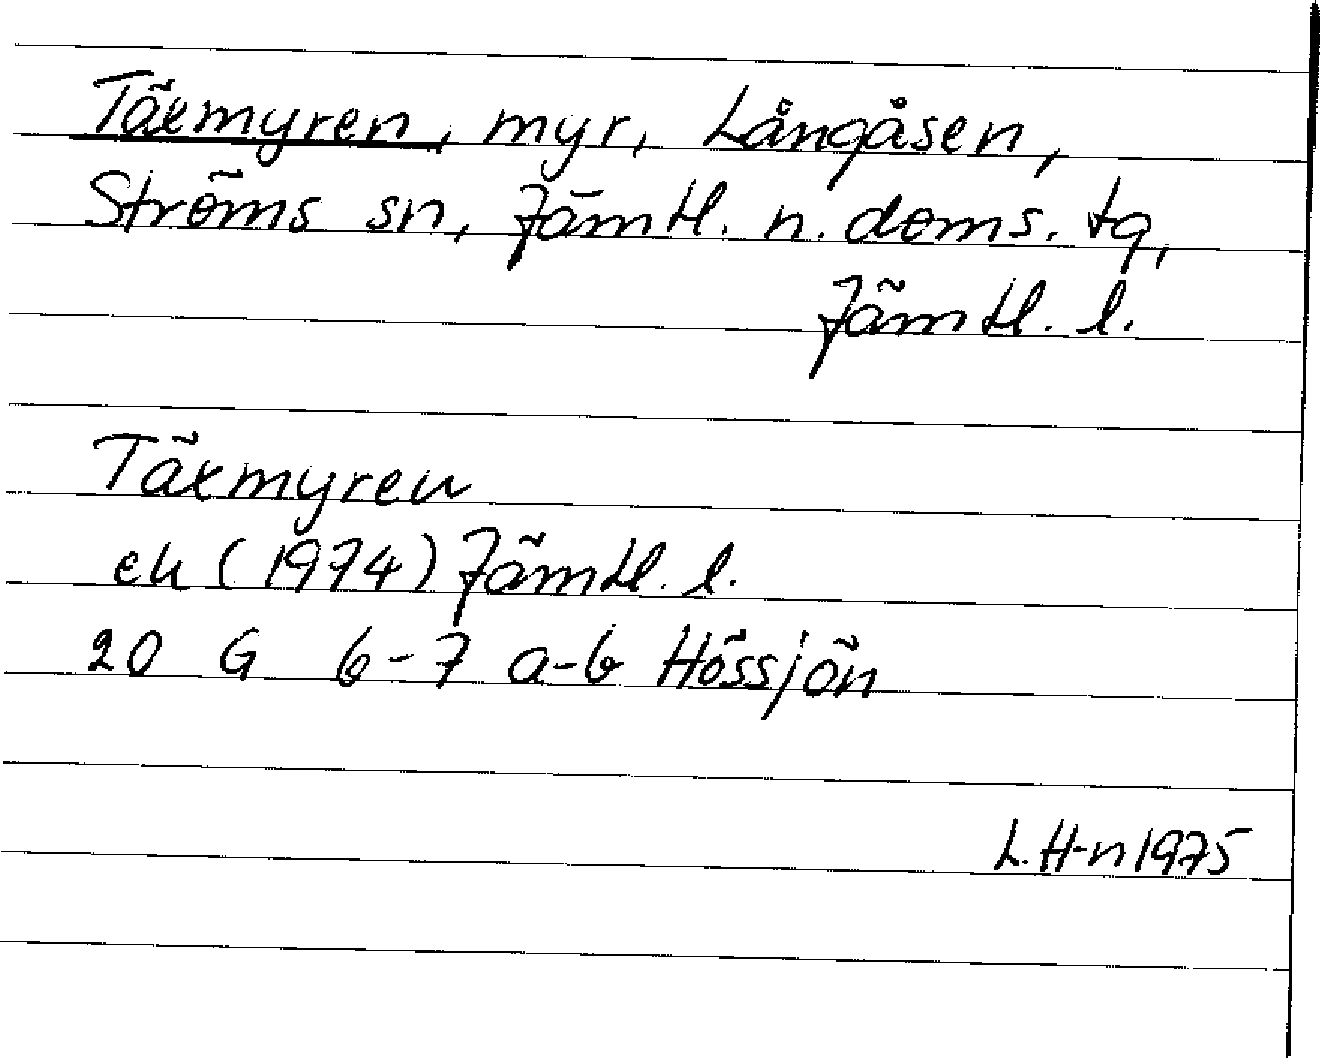 Täxmyren, myr, Långåsen,
Ströms sn, Jämtl. n. doms. tg,
Jämtl. l.
Täxmyren
ek (1974) Jämtl. l.
20 G 6-7 a-b Hössjön
L. H-n 1975